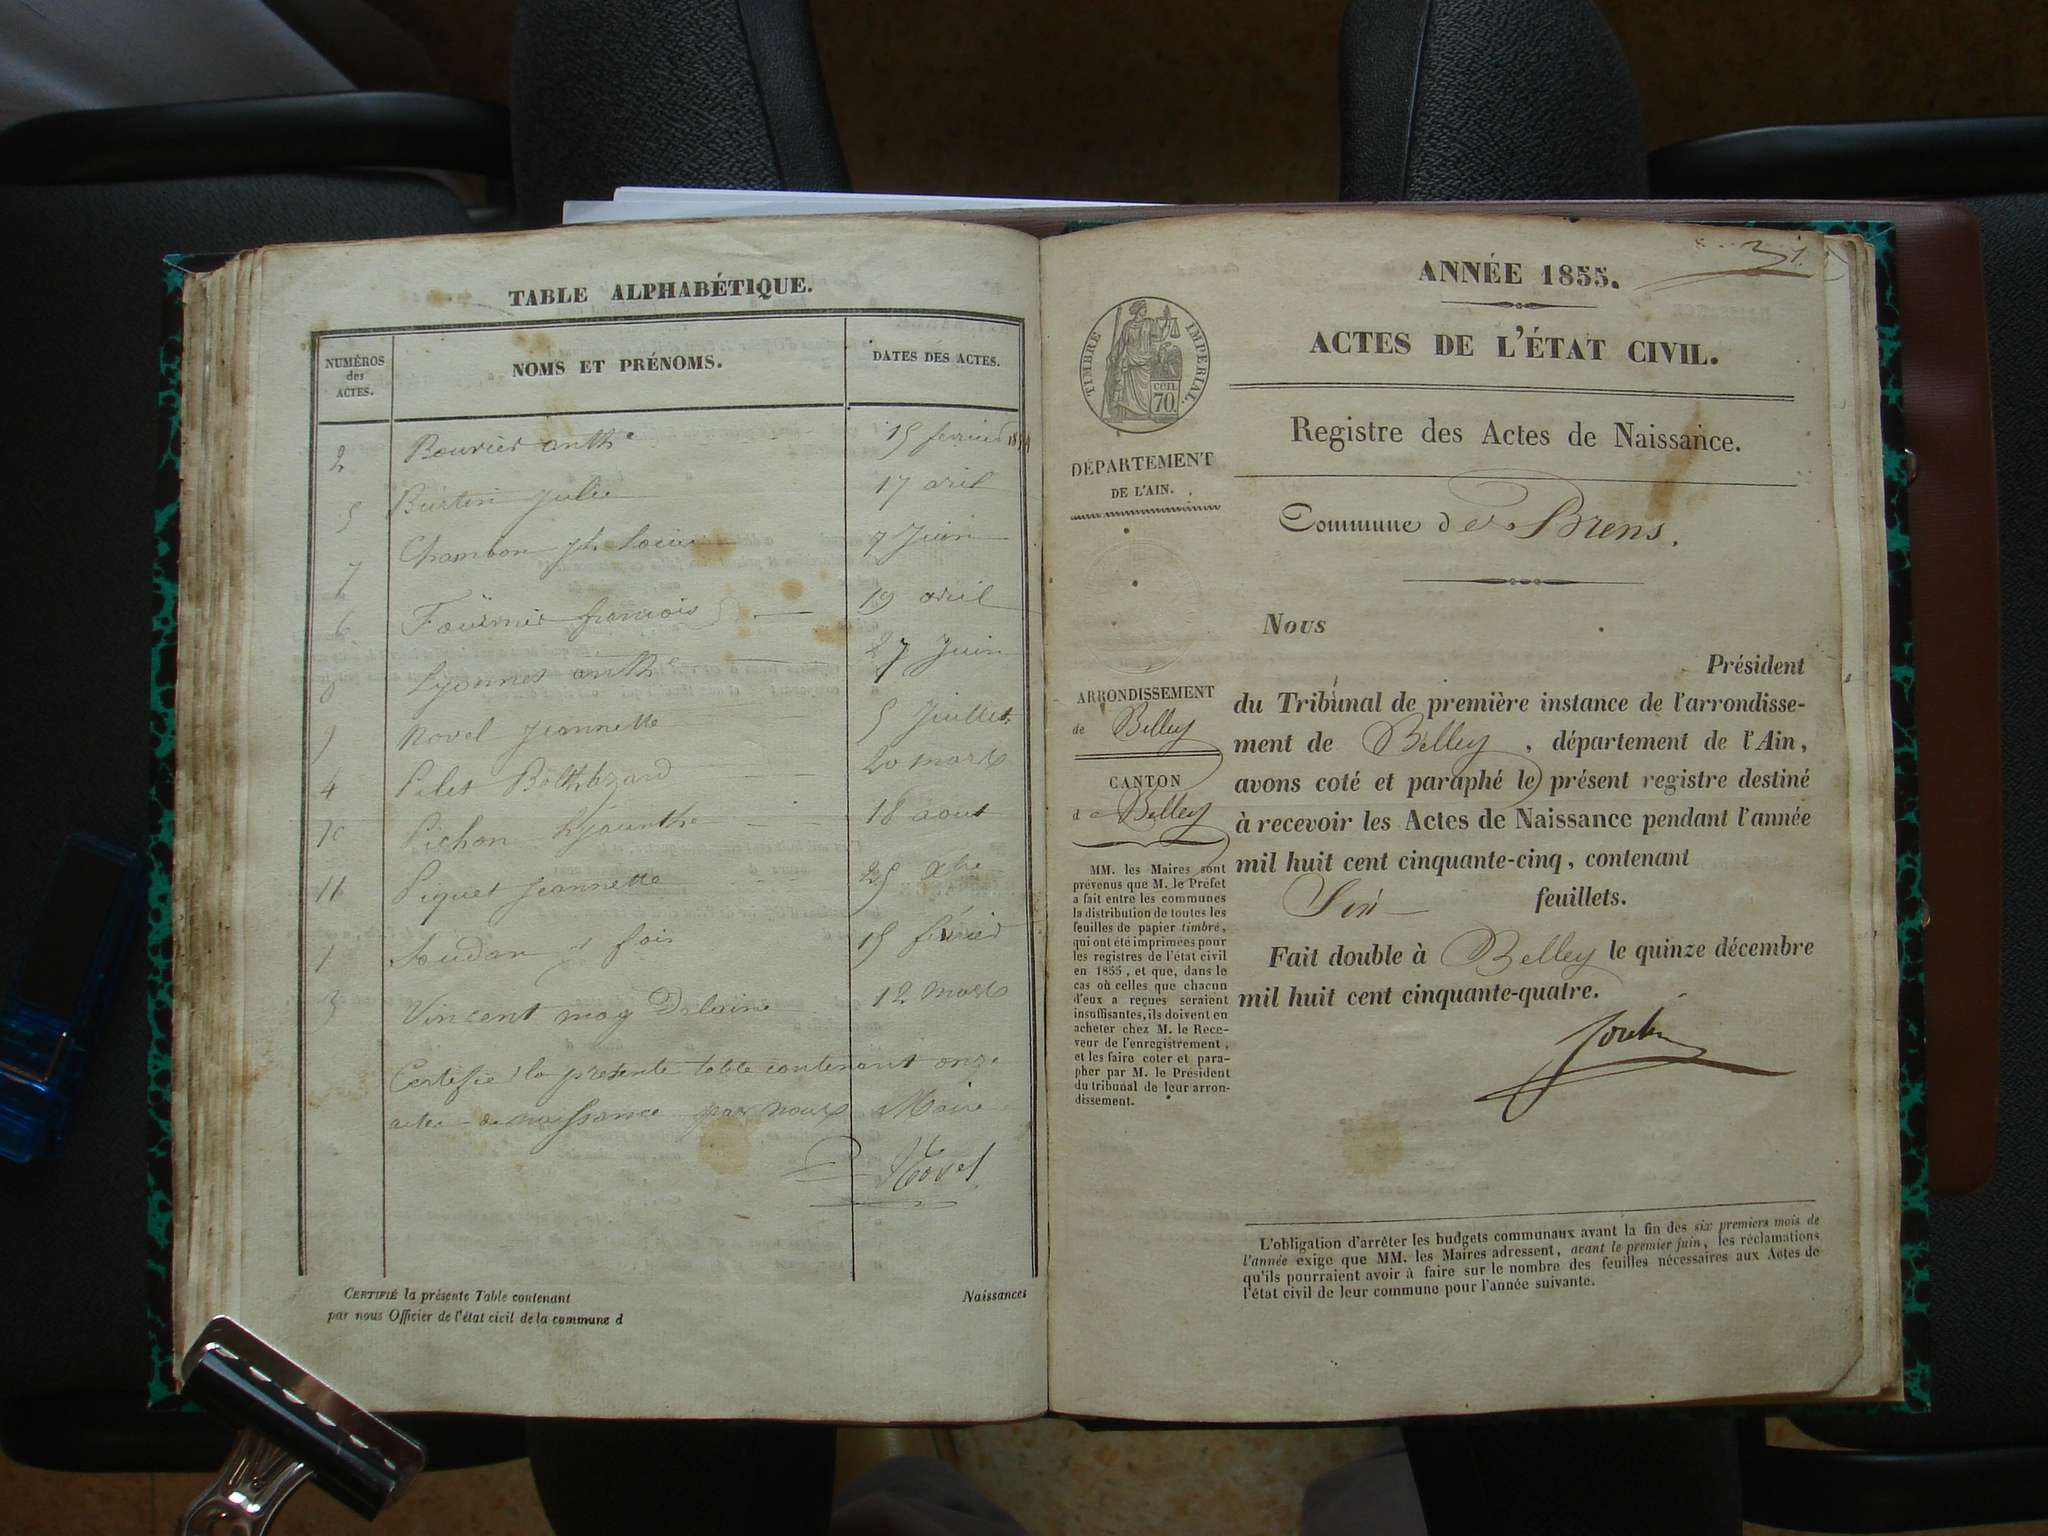 TABLE ALPHABÉTIQUE.
NUMÉROS des ACTES.
NOMS ET PRÉNOMS.
DATES DES ACTES.
2 Bouvier anthe 15 fevrier 1854
5 Burtin Julie 17 avril
7 Chambon jh Louis 7 Juin
6 Fournier francois 19 avril
8 Lyonnet anthe 27 Juin
9 Novel Jeannette 5 Juillet
4 Pilet Balthazard 20 mars
10 Pichon hyacinthe 18 aout
11 Piquet Jeannette 25 Xbre
1 Soudan fois 15 février
3 Vincent Delaine 12 mars
Certifié la presente table contenant onze
actes de naissance par nous Maire
Novel
CERTIFIÉ la présente Table contenant Naissances
par nous Officier de l'état civil de la commune d
31
ANNÉE 1855.
ACTES DE L'ÉTAT CIVIL.
TIMBRE IMPERIAL.
cen.
70
Registre des Actes de Naissance.
DÉPARTEMENT
DE L'AIN.
Commune de Brens.
Nous
Président
du Tribunal de première instance de l'arrondisse-
ment de Belley, département de l'Ain,
avons coté et paraphé le présent registre destiné
à recevoir les Actes de Naissance pendant l'année
mil huit cent cinquante-cinq, contenant
Six feuillets.
Fait double à Belley le quinze décembre
mil huit cent cinquante-quatre.
ARRONDISSEMENT
de Belley
CANTON
de Belley
MM. les Maires sont
prévenus que M. le Préfet
a fait entre les communes
la distribution de toutes les
feuilles de papier timbré,
qui ont été imprimées pour
les registres de l'état civil
en 1855, et que, dans le
cas où celles que chacun
d'eux a reçues seraient
insuffisantes, ils doivent en
acheter chez M. le Rece-
veur de l'enregistrement,
et les faire coter et para-
pher par M. le Président
du tribunal de leur arron-
dissement.
L'obligation d'arrêter les budgets communaux avant la fin des six premiers mois de
l'année exige que MM. les Maires adressent, avant le premier juin, les réclamations
qu'ils pourraient avoir à faire sur le nombre des feuilles nécessaires aux Actes de
l'état civil de leur commune pour l'année suivante.